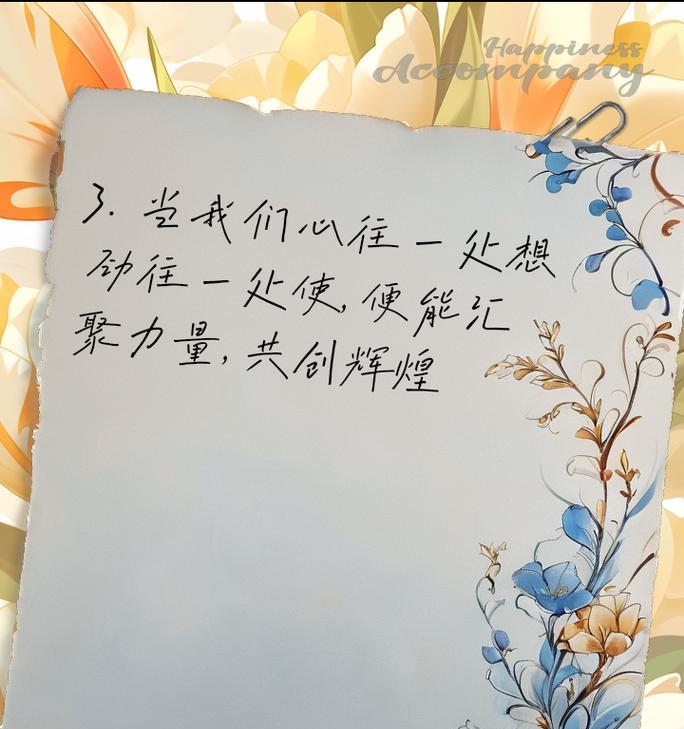 Happiness
Accompany
3. 当我们心往一处想
劲往一处使,便能汇
聚力量,共创辉煌